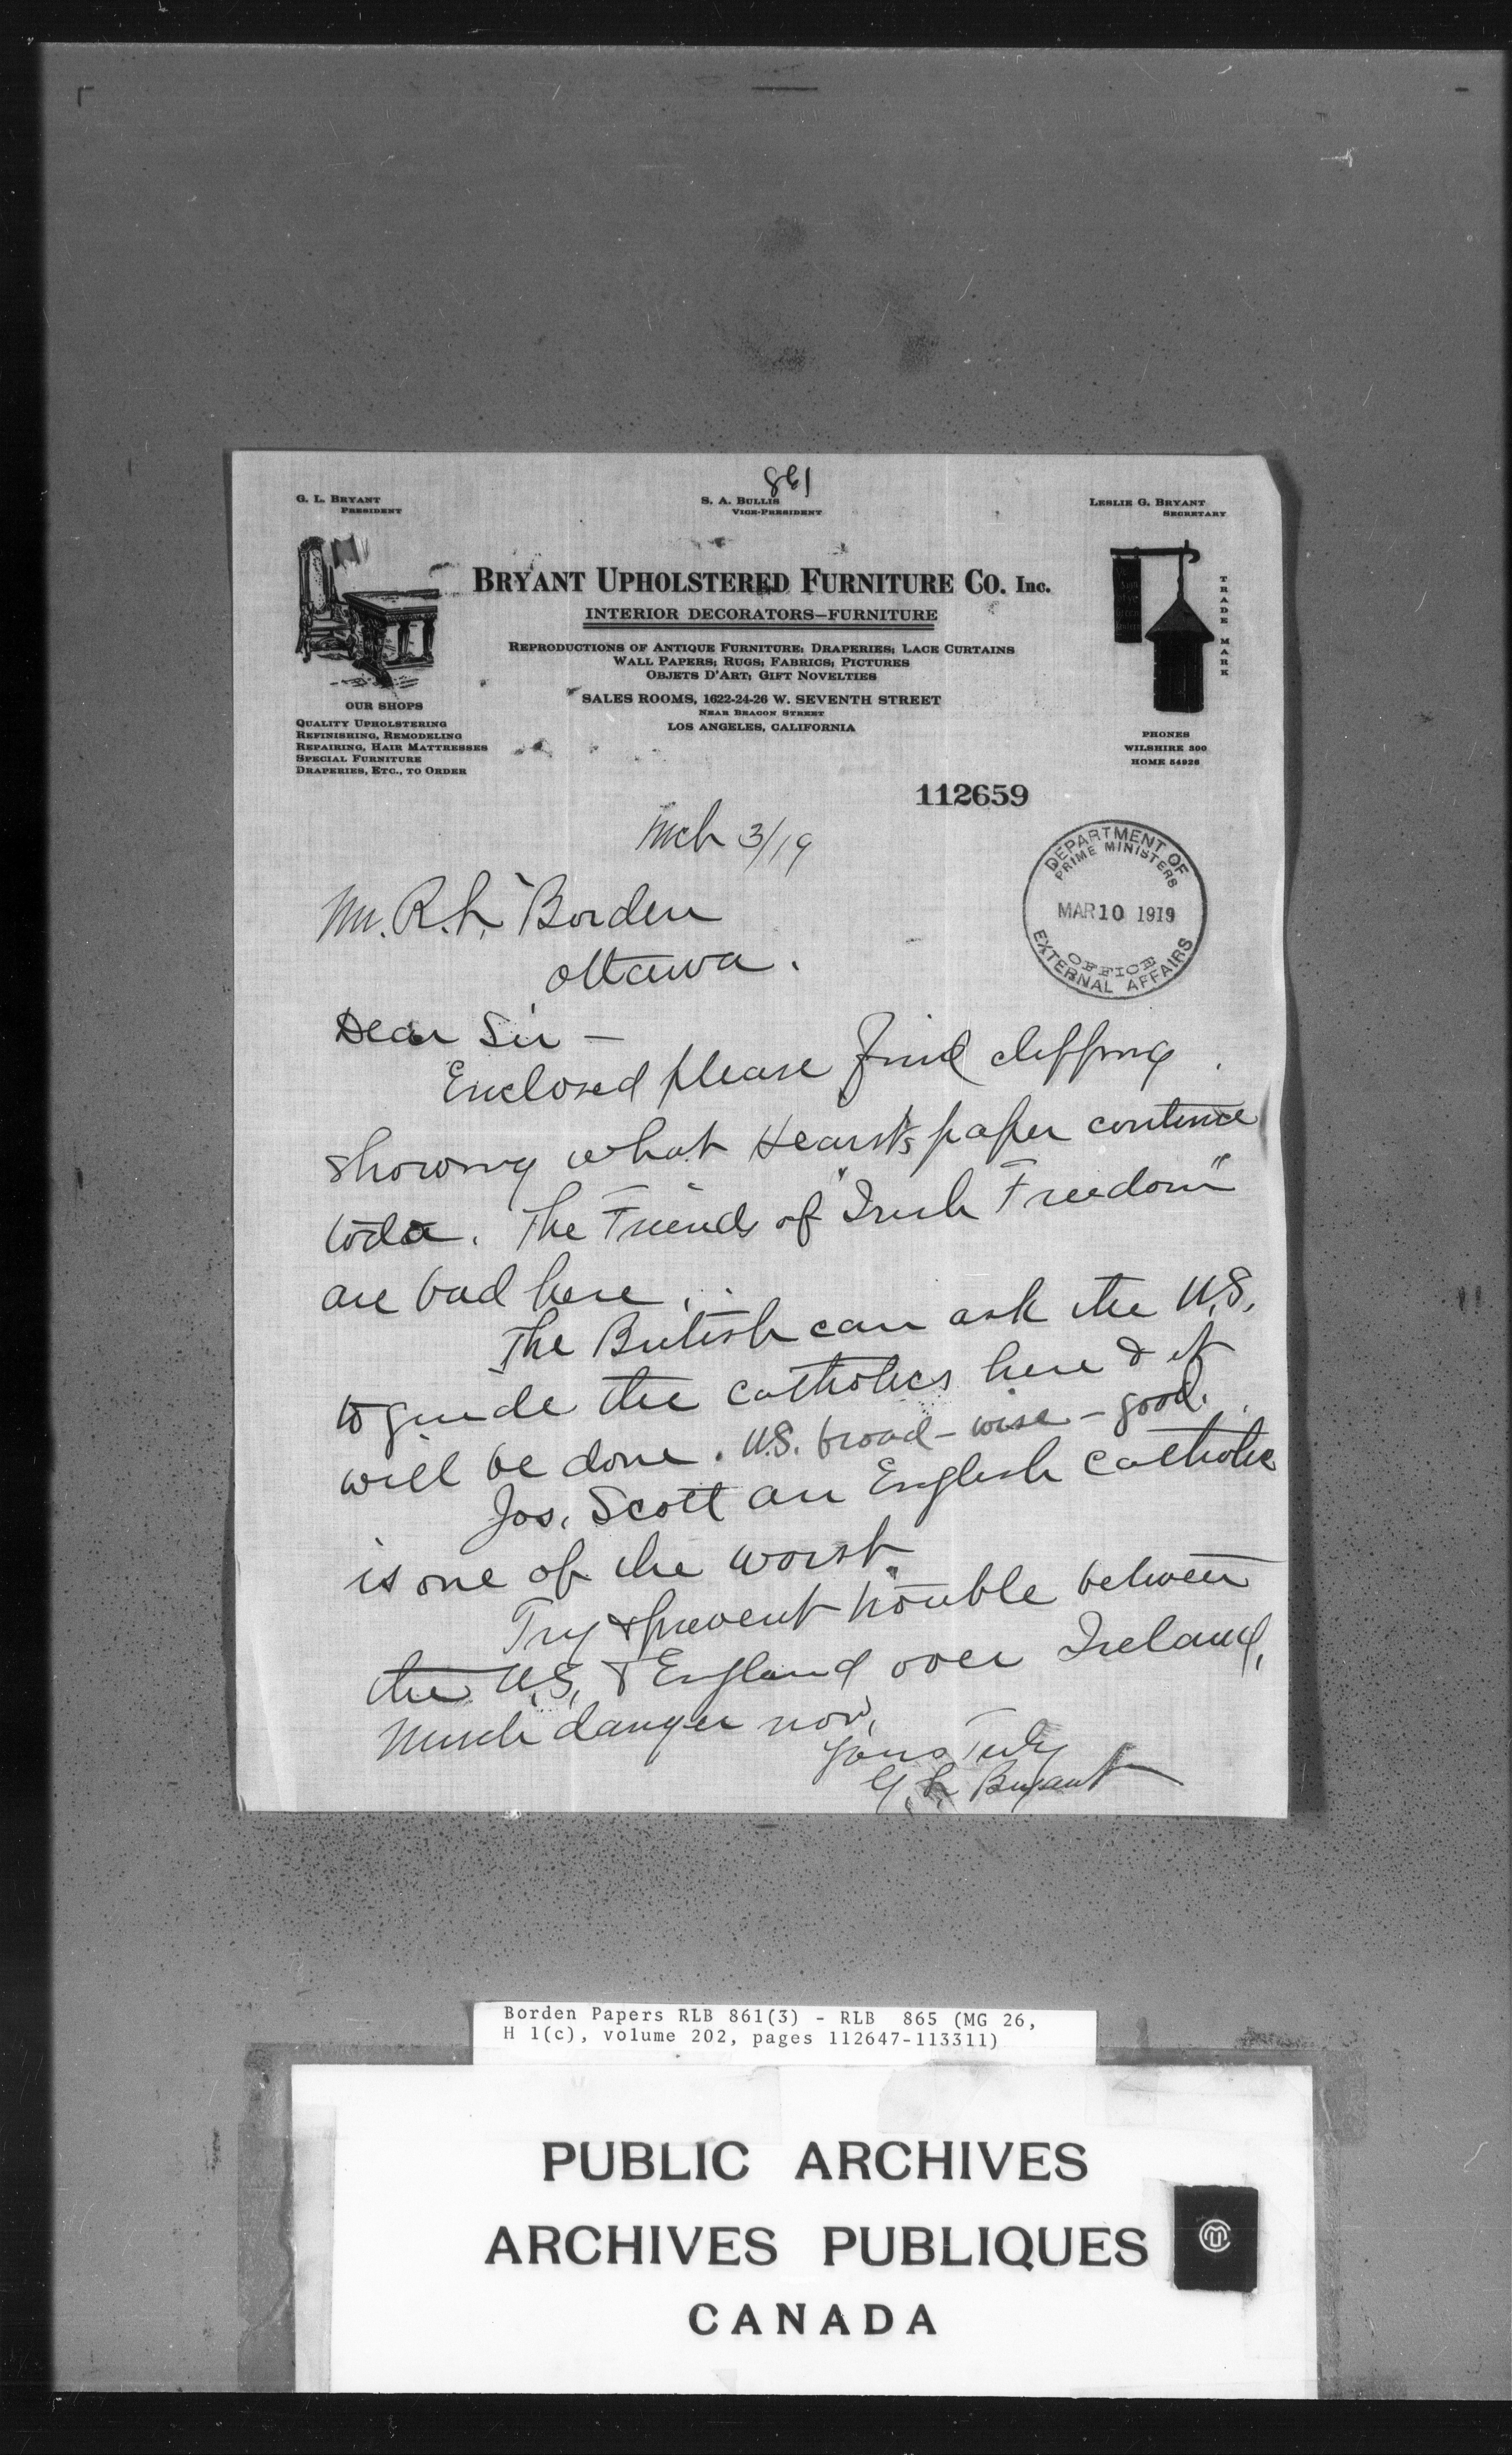 861
G. L. BRYANT
PRESIDENT
S. A. BULLIS
VICE-PRESIDENT
LESLIE G. BRYANT
SECRETARY
BRYANT UPHOLSTERED FURNITURE CO. Inc.
INTERIOR DECORATORS—FURNITURE
REPRODUCTIONS OF ANTIQUE FURNITURE; DRAPERIES; LACE CURTAINS
WALL PAPERS; RUGS; FABRICS; PICTURES
OBJETS D'ART; GIFT NOVELTIES
SALES ROOMS, 1622-24-26 W. SEVENTH STREET
NEAR BEACON STREET
LOS ANGELES, CALIFORNIA
OUR SHOPS
QUALITY UPHOLSTERING
REFINISHING, REMODELING
REPAIRING, HAIR MATTRESSES
SPECIAL FURNITURE
DRAPERIES, ETC., TO ORDER
TRADE MARK
PHONES
WILSHIRE 300
HOME 54926
112659
Mch 3/19
DEPARTMENT OF
PRIME MINISTERS
MAR 10 1919
OFFICE
EXTERNAL AFFAIRS
Mr. R. L. Borden
Ottawa.
Dear Sir —
Enclosed please find clipping
showing what Hearst's paper continue
to do. The Friends of "Irish Freedom"
are bad here.
The British can ask the U.S.
to guide the catholics here & it
will be done. U.S. broad - wise - good.
Jos. Scott an English catholic
is one of the worst.
Try & prevent trouble between
the U.S. & England over Ireland,
Much danger now,
Yours Truly
G. L. Bryant
Borden Papers RLB 861(3) - RLB 865 (MG 26,
H 1(c), volume 202, pages 112647-113311)
PUBLIC ARCHIVES
ARCHIVES PUBLIQUES
CANADA